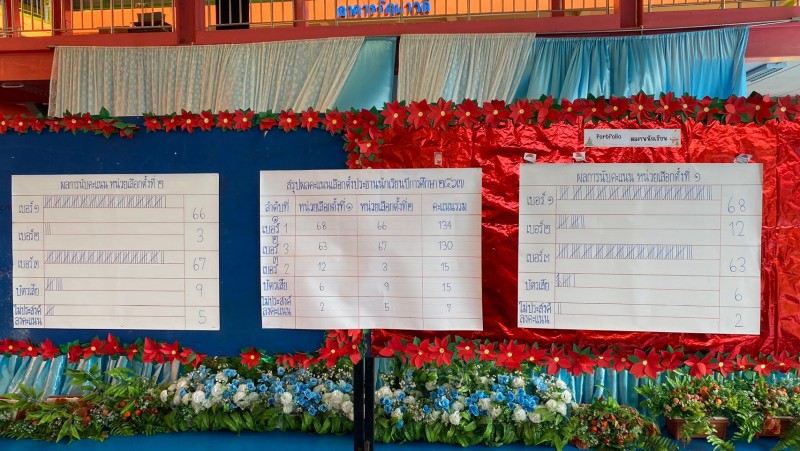 อาคารรัตนาวลี
PortFolio ผลงานนักเรียน
ผลการนับคะแนน หน่วยเลือกตั้งที่ ๒
เบอร์ ๑ 66
เบอร์ ๒ 3
เบอร์ ๓ 67
บัตรเสีย 9
ไม่ประสงค์ลงคะแนน 5
สรุปผลคะแนนเลือกตั้งประธานนักเรียนปีการศึกษา ๒๕๖๗
ลำดับที่ หน่วยเลือกตั้งที่ ๑ หน่วยเลือกตั้งที่ ๒ คะแนนรวม
เบอร์ ๑ 1 68 66 134
เบอร์ ๒ 3 63 67 130
เบอร์ ๓ 2 12 3 15
บัตรเสีย 6 9 15
ไม่ประสงค์ลงคะแนน 2 5 7
ผลการนับคะแนน หน่วยเลือกตั้งที่ ๑
เบอร์ ๑ 68
เบอร์ ๒ 12
เบอร์ ๓ 63
บัตรเสีย 6
ไม่ประสงค์ลงคะแนน 2